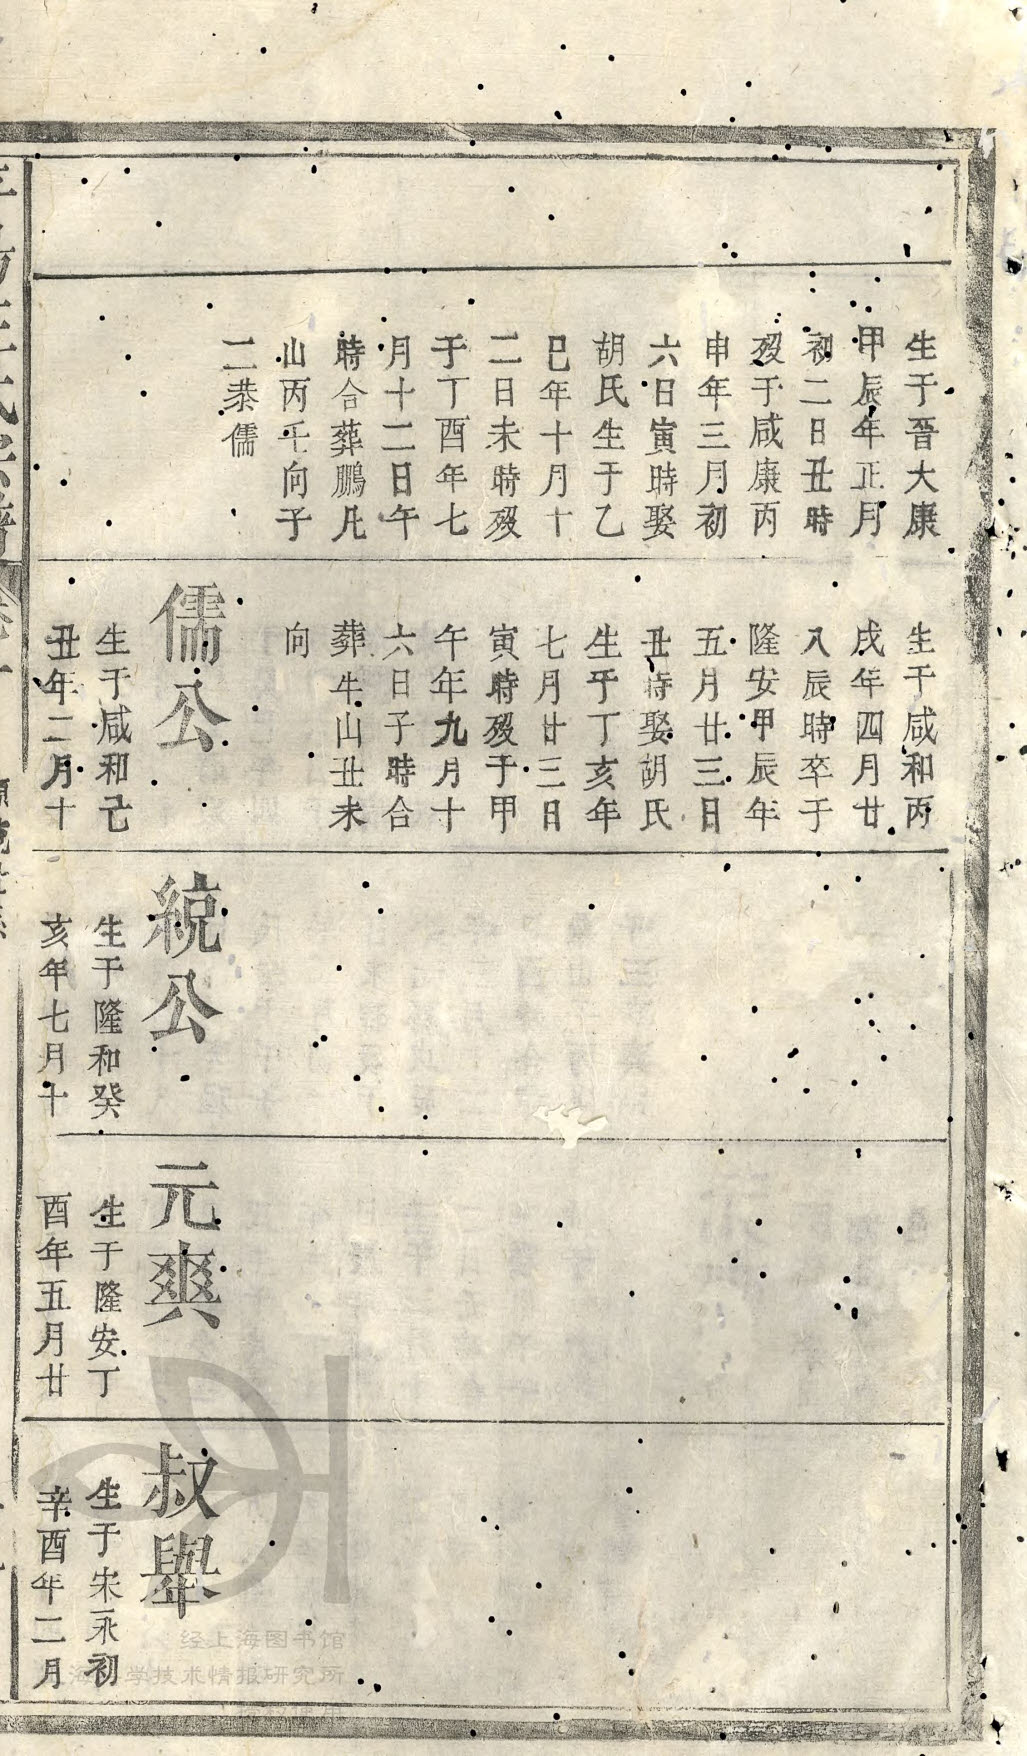 生于晉大康
甲辰年正月
初二日丑時
歿于咸康丙
申年三月初
六日寅時娶
胡氏生于乙
巳年十月十
二日未時歿
于丁酉年七
月十二日午
時合葬鵬凡
山丙壬向子
二恭儒
生于咸和丙
戌年四月廿
八辰時卒于
隆安甲辰年
五月廿三日
丑時娶胡氏
生于丁亥年
七月廿三日
寅時歿于甲
午年九月十
六日子時合
葬牛山丑未
向
儒公
生于咸和己
丑年二月十
統公
生于隆和癸
亥年七月十
元爽
生于隆安丁
酉年五月廿
叔舉
生于宋永初
辛酉年二月
经上海图书馆
海 学技术情报研究所